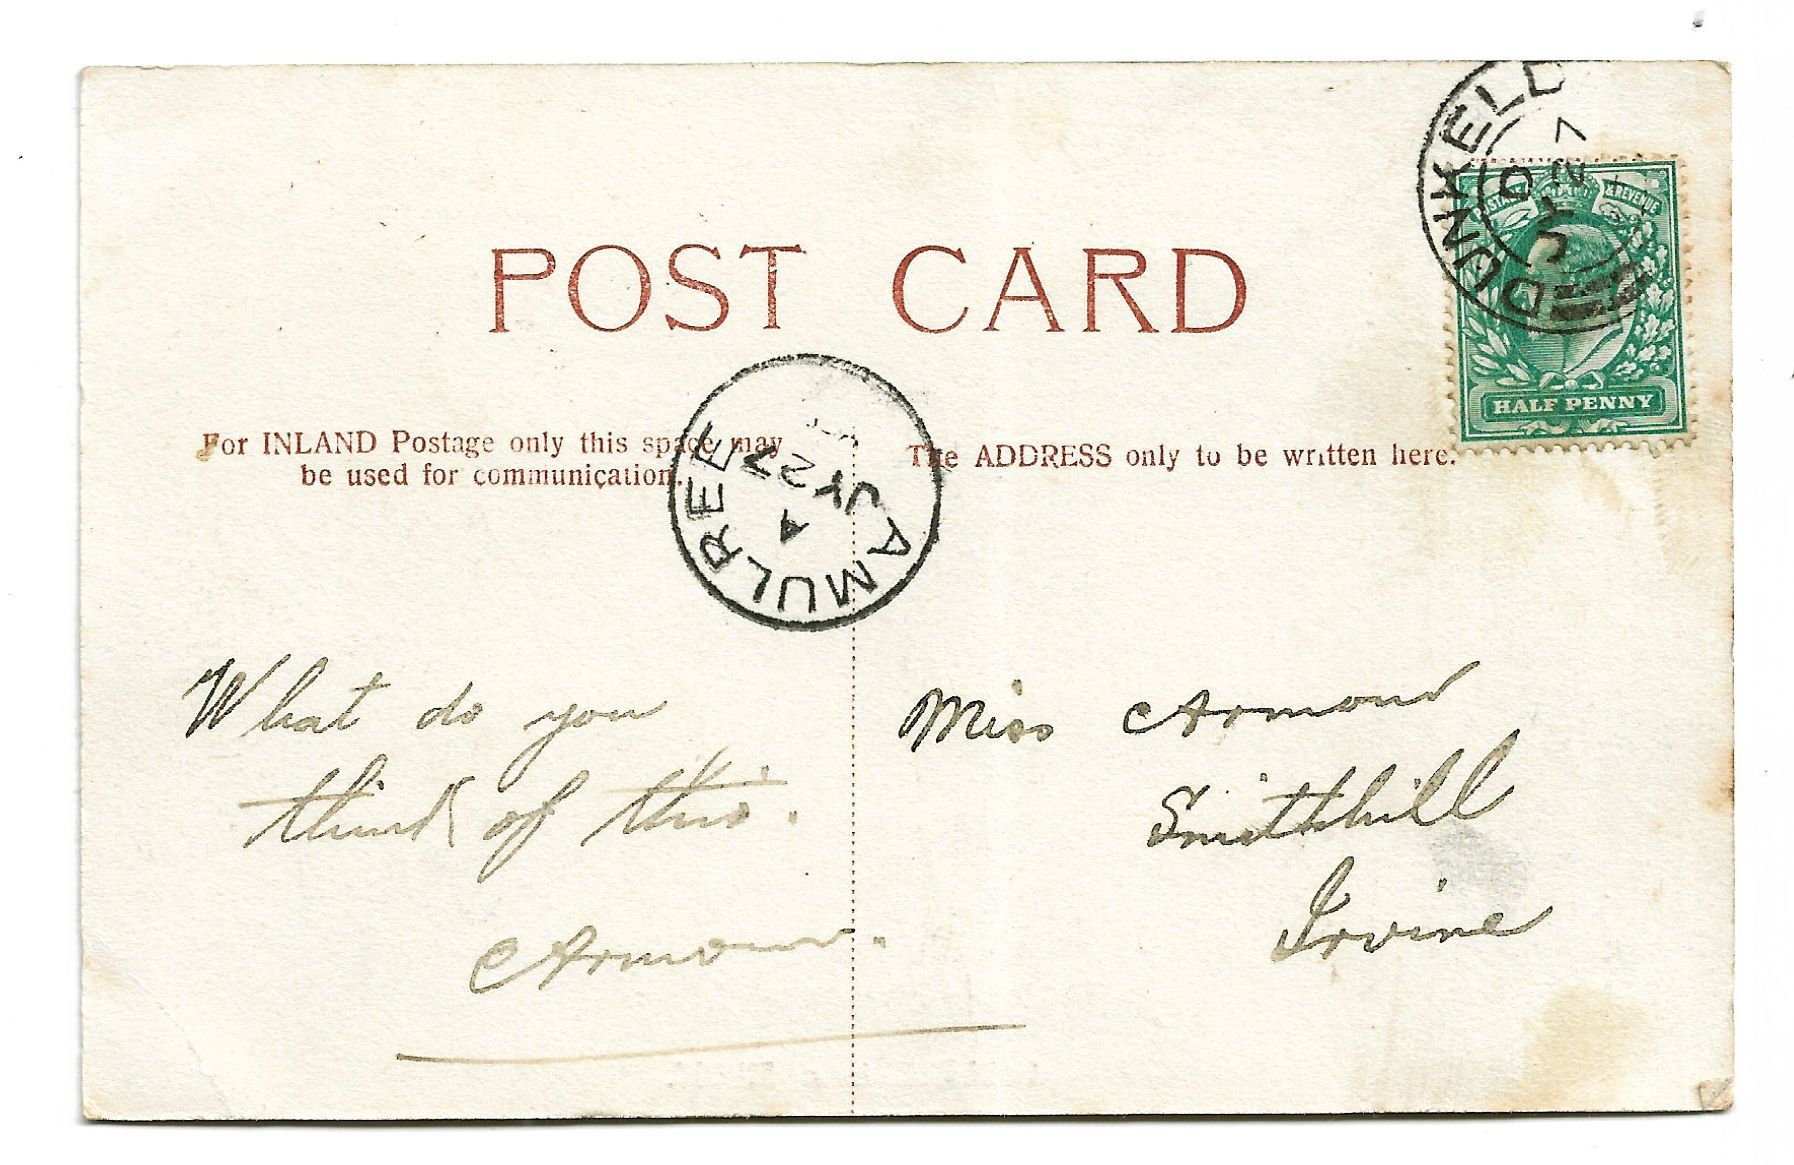 POST CARD
For INLAND Postage only this space may
be used for communication.
The ADDRESS only to be written here.
DUNKELD
D
JY 27
POSTAGE & REVENUE
HALF PENNY
AMULREE
A
JY 27
What do you
think of this.
Armour.
Miss Armour
Smithhill
Irvine